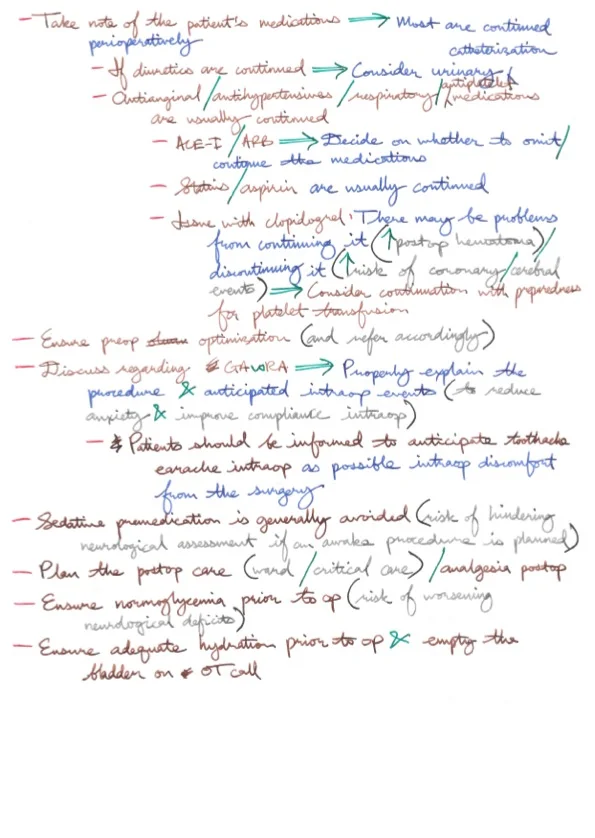 - Take note of the patient's medications ⟹ Most are continued
perioperatively
- If diuretics are continued ⟹ Consider urinary catheterization
- Antianginal/antihypertensives/respiratory/antiplatelet medications
are usually continued
- ACE-I/ARB ⟹ Decide on whether to omit/
continue the medications
- Statins/aspirin are usually continued
- Issue with clopidogrel: There may be problems
from continuing it (↑postop hematoma)/
discontinuing it (↑risk of coronary/cerebral
events) ⟹ Consider continuation with preparedness
for platelet transfusion
- Ensure preop optimization (and refer accordingly)
- Discuss regarding GA vs RA ⟹ Properly explain the
procedure & anticipated intraop events (to reduce
anxiety & improve compliance intraop)
- Patients should be informed to anticipate toothache
earache intraop as possible intraop discomfort
from the surgery
- Sedative premedication is generally avoided (risk of hindering
neurological assessment if an awake procedure is planned)
- Plan the postop care (ward/critical care)/analgesia postop
- Ensure normoglycemia prior to op (risk of worsening
neurological deficits)
- Ensure adequate hydration prior to op & empty the
bladder on OT call